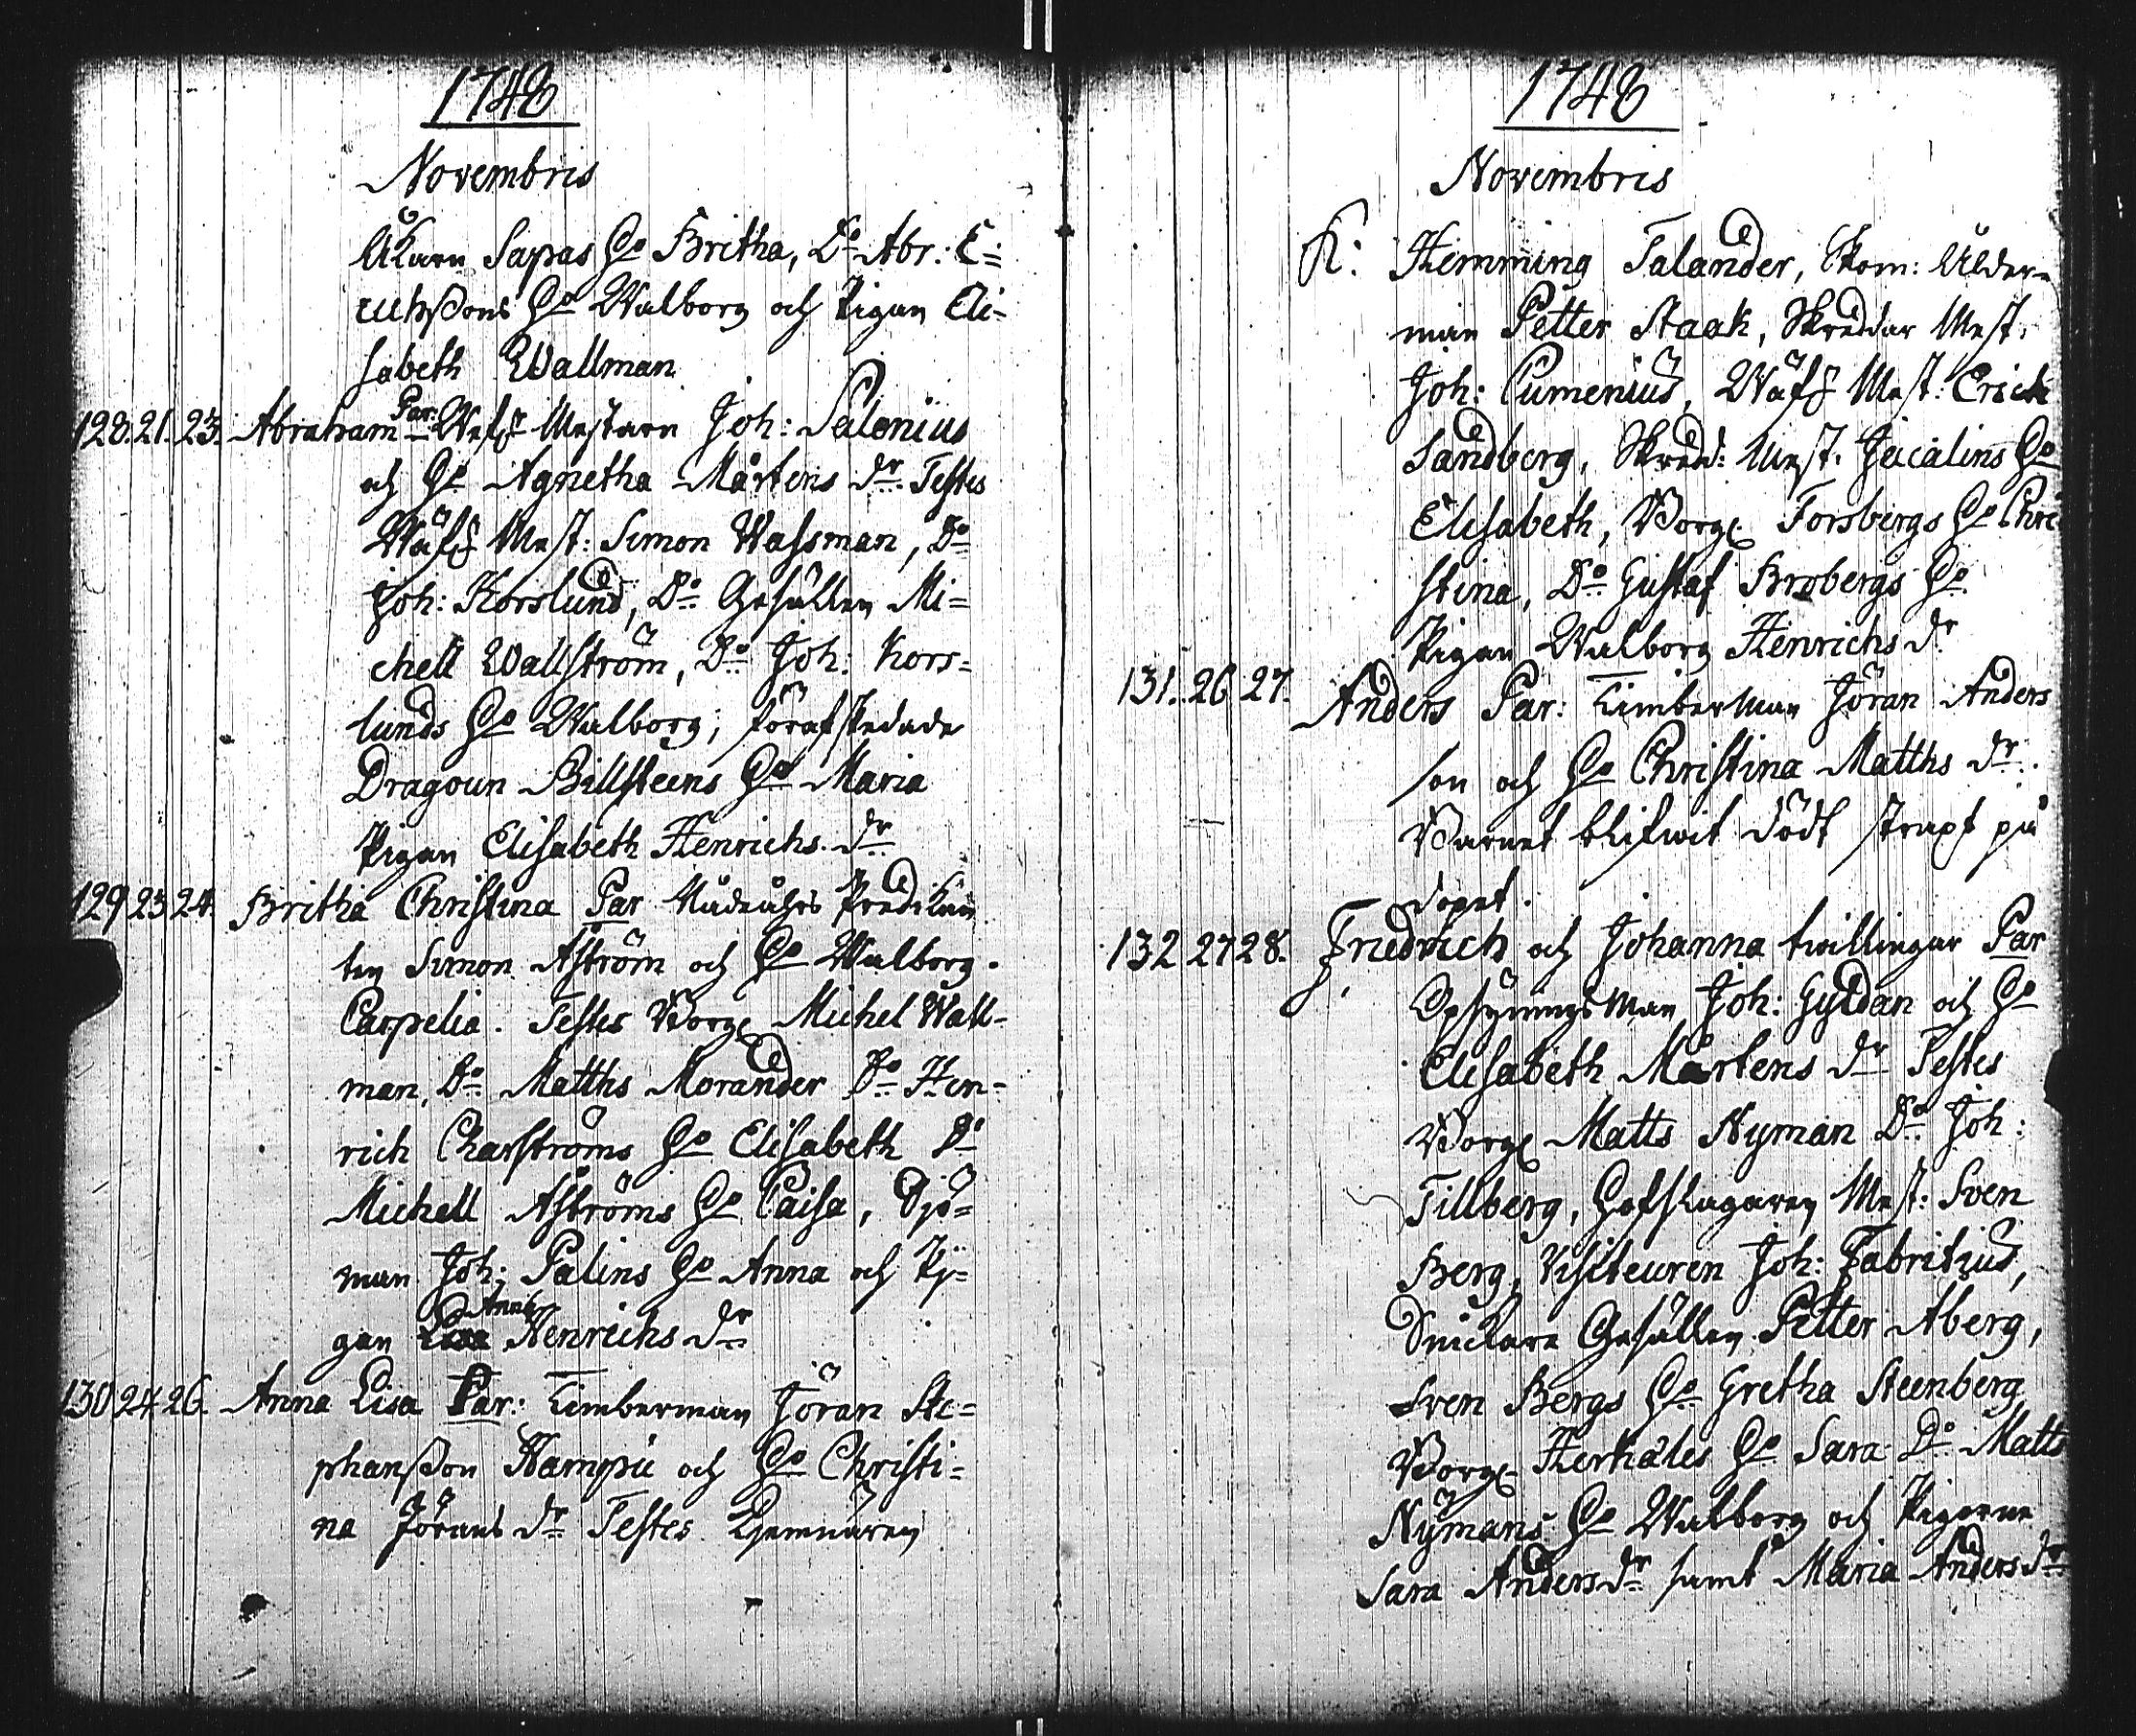 1748
Novembris
Åkarn Sapas H:o Britha, D:o Abr: E=
richssons H:o Walborg och Pigan Eli-
sabeth Wallman
128. 21. 23. Abraham Par: Weff Mestarn Joh: Salonius
och H:o Agnetha Mårtens dr. Testes
Wäff Mest: Simon Wassman, D:o
Joh: Korslund, D:o Gesällen Mi=
chell Wallström, D:o Joh: Kors=
lunds H:o Walborg, förafskedade
Dragoun Billsteens H:o Maria
Pigan Elisabeth Henrichs dr
129 23 24. Britha Christina Par Nådeåhrs Predikan
ten Simon Åström och H:o Walborg
Carpelia. Testes Borg. Michel Wall-
man, D:o Matths Morander D:o Hen-
rich Charströms H:o Elisabeth D:o
Michell Åströms H:o Caisa, Sjö=
man Joh: Palins H:o Anna och Pi=
gan Anna Henrichs dr
130 24 26. Anna Lisa Par: Timberman Jöran Ste=
phansson Kamppu och H:o Christi=
na Jörans dr Testes Kemnären
1748
Novembris
R: Hemming Talander, Skom: Ålder-
man Petter Staak, Skreddar Mest.
Joh: Cumenius, Wäff Mest: Erich
Sandberg, Skredd: Mest. Jacalins H:o
Elisabeth, Borg. Forsbergs H:o Chri
stina, D:o Gustaf Brobergs H:o
Pigan Walborg Henrichs dr
131. 26 27. Anders Par: Timberman Jöran Anders
son och H:o Christina Matths dr.
Barnet blifwit dödt strapt på
dopet.
132 27 28. Friedrich och Johanna twillingar Par
Opsynings Man Joh: Gyldan och H:o
Elisabeth Mårtens dr Testes
Borg. Matts Nyman D:o Joh:
Tillberg, Hofslagaren Mest: Sven
Berg, Visiteuren Joh: Fabritius,
Snickare Gesällen Petter Åberg,
Sven Bergs H:o Gretha Steenberg
Borg. Kerkäles H:o Sara D:o Matts
Nymans H:o Walborg och Pigorne
Sara Anders dr samt Maria Anders dr